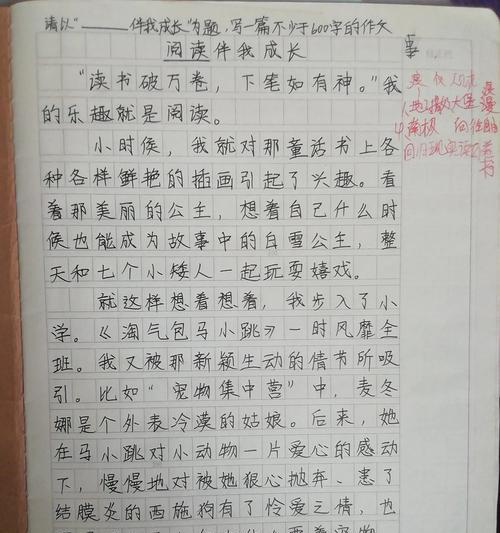 请以"______伴我成长"为题,写一篇不少于600字的作文
阅读伴我成长
"读书破万卷,下笔如有神。"我
的乐趣就是阅读。
小时侯,我就对那童话书上各
种各样鲜艳的插画引起了兴趣。看
着那美丽的公主,想着自己什么时
候也能成为故事中的白雪公主,整
天和七个小矮人一起玩耍嬉戏。
就这样想着想着,我步入了小
学。《淘气包马小跳》一时风靡全
班。我又被那新颖生动的情节所吸
引。比如"宠物集中营"中,麦冬
娜是个外表冷漠的姑娘。后来,她
在马小跳对小动物一片爱心的感动
下,慢慢地对被她狠心抛弃、患了
结膜炎的西施狗有了怜爱之情,也
事